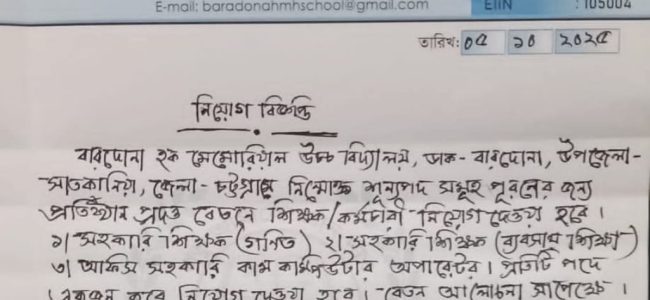 E-mail: baradonahmhschool@gmail.com EIIN : 105004
তারিখ: ০৫ ১০ ২০২৫
নিয়োগ বিজ্ঞপ্তি
বারদোনা হক মেমোরিয়াল উচ্চ বিদ্যালয়, ডাক - বারদোনা, উপজেলা-
সাতকানিয়া, জেলা - চট্টগ্রামে নিম্নোক্ত শূন্যপদ সমূহ পূরনের জন্য
প্রতিষ্ঠান প্রদত্ত বেতনে শিক্ষক/কর্মচারী নিয়োগ দেওয়া হবে।
১। সহকারি শিক্ষক (গনিত) ২। সহকারি শিক্ষক (ব্যবসায় শিক্ষা)
৩। অফিস সহকারি কাম কম্পিউটার অপারেটর। প্রতিটি পদে
১ একজন করে নিয়োগ দেওয়া হবে। বেতন আলোচনা সাপেক্ষে।